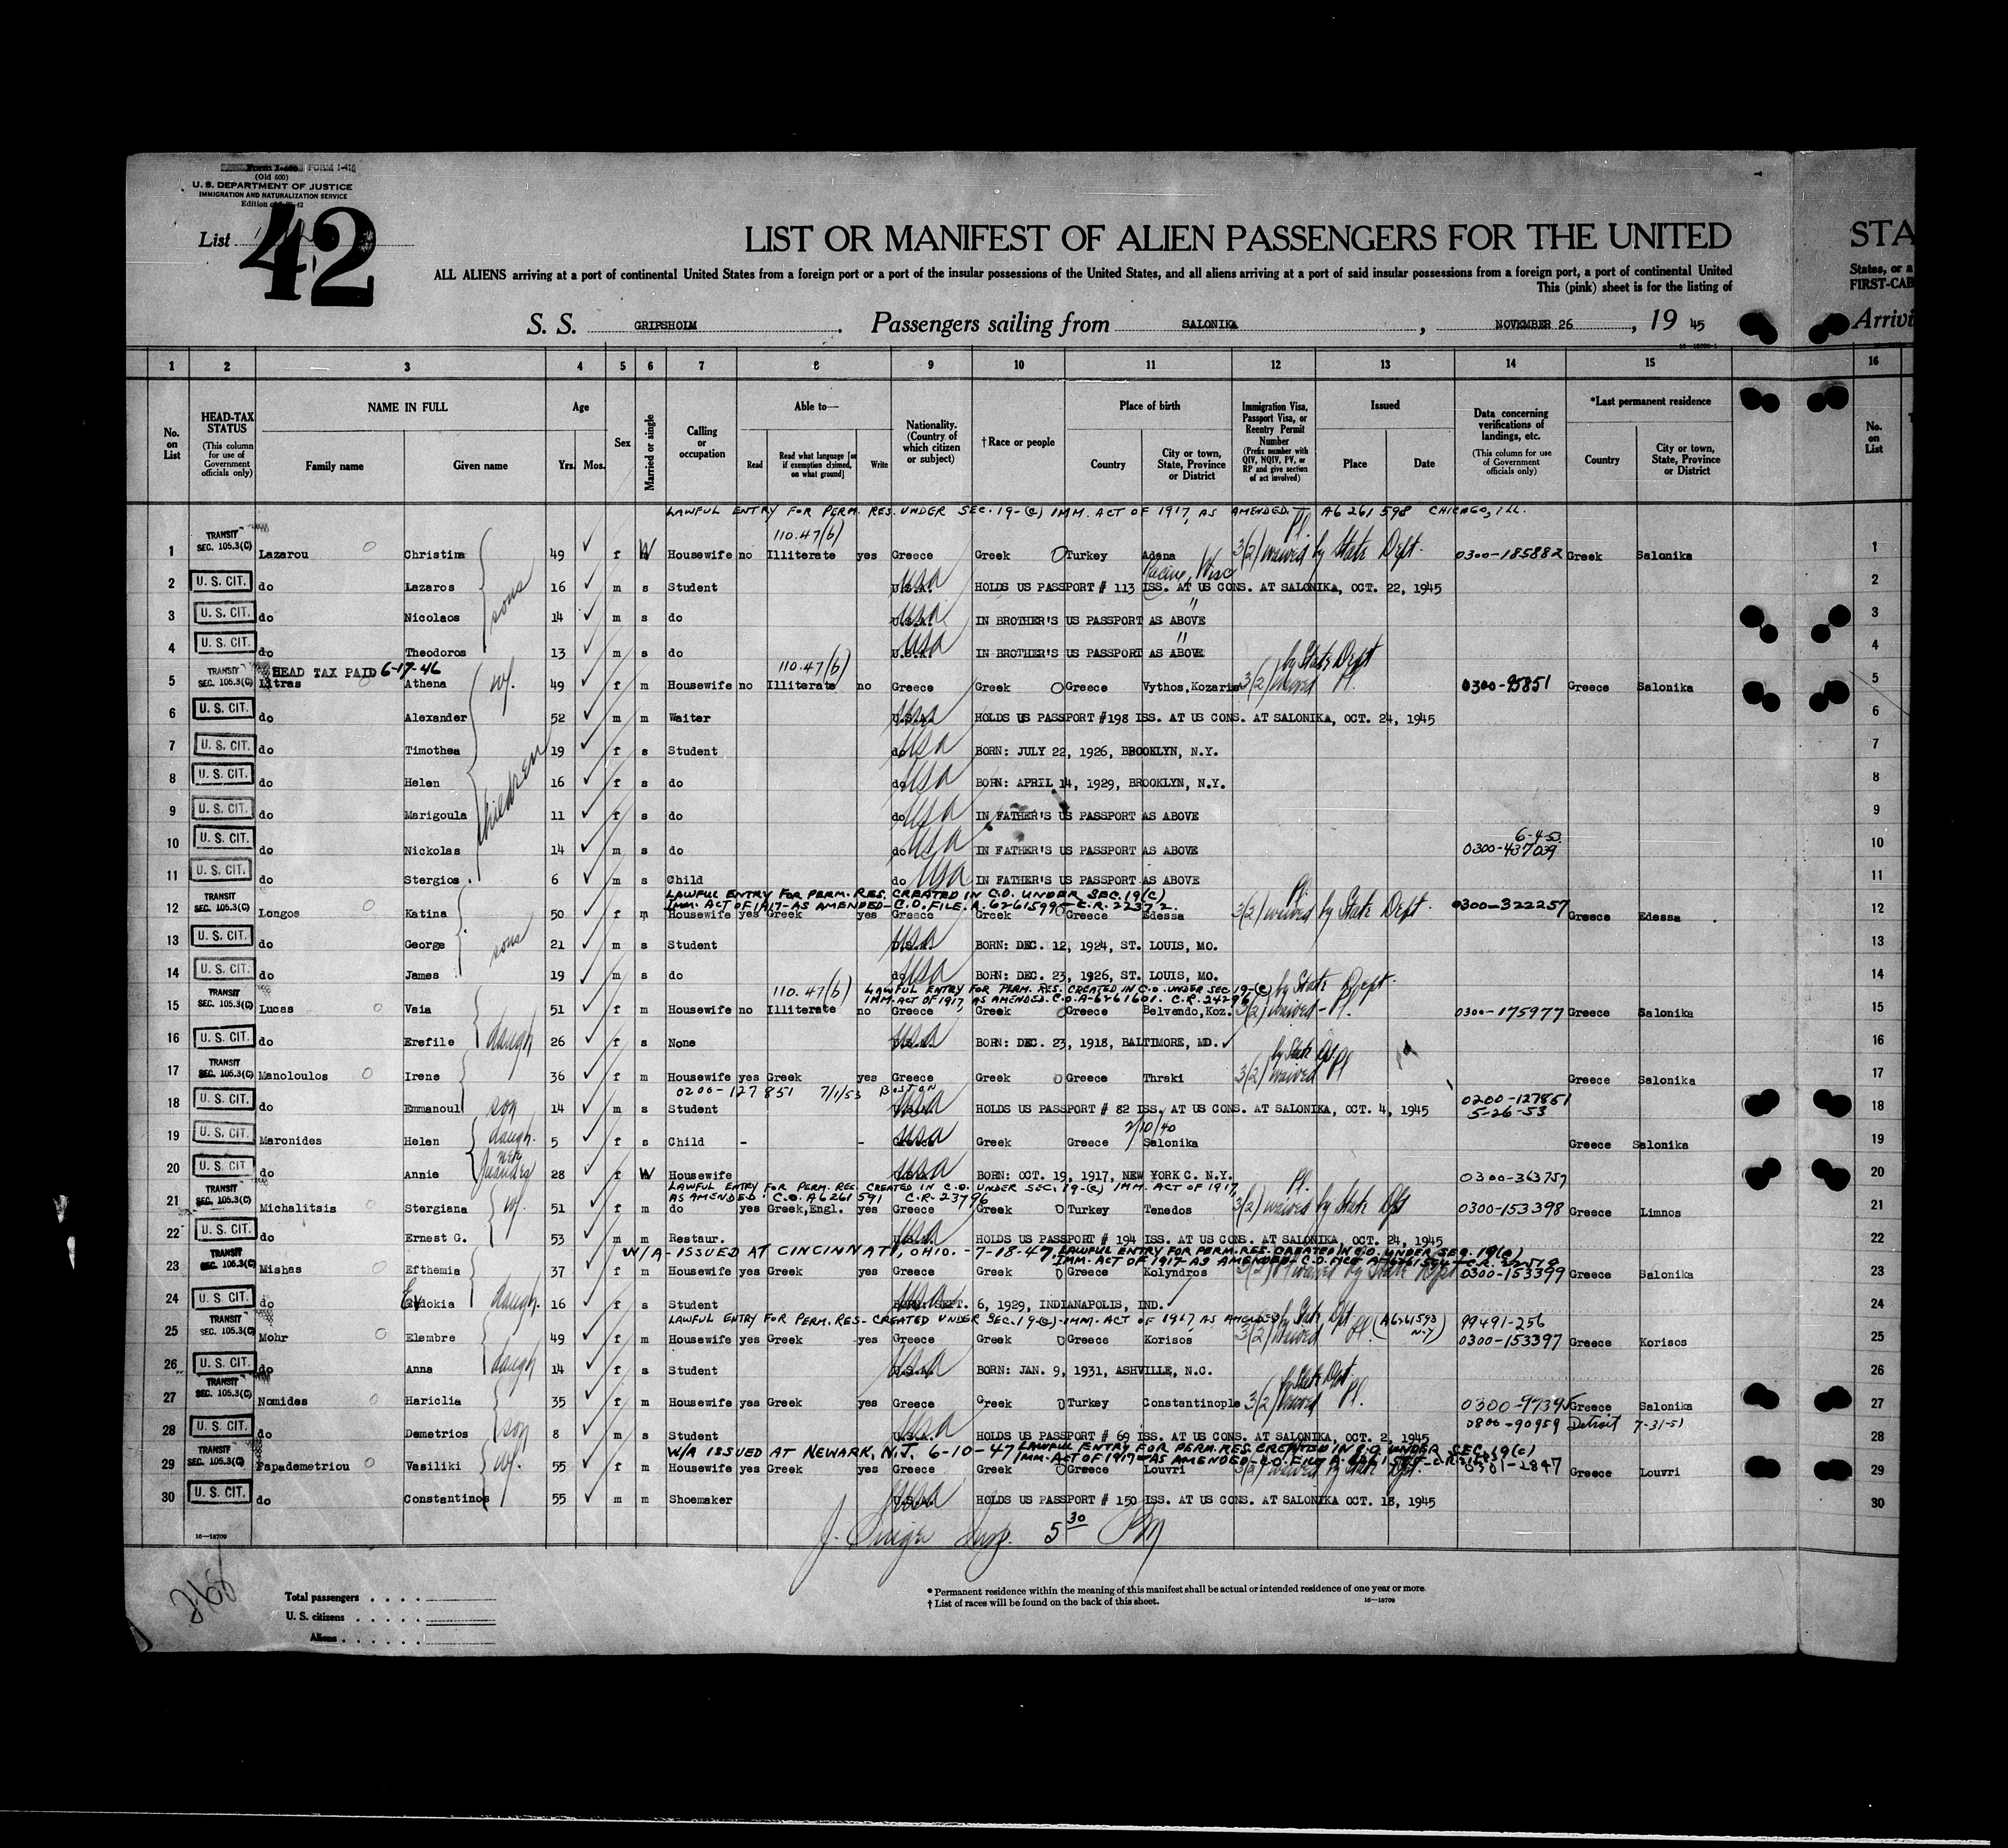 FORM I-416
(Old 500)
U. S. DEPARTMENT OF JUSTICE
IMMIGRATION AND NATURALIZATION SERVICE
List 42
LIST OR MANIFEST OF ALIEN PASSENGERS FOR THE UNITED STA
ALL ALIENS arriving at a port of continental United States from a foreign port or a port of the insular possessions of the United States, and all aliens arriving at a port of said insular possessions from a foreign port, a port of continental United States, or a
This (pink) sheet is for the listing of FIRST-CAB
S. S. GRIPSHOLM. Passengers sailing from SALONIKA, NOVEMBER 26, 19 45 Arrivi
1 2 3 4 5 6 7 8 9 10 11 12 13 14 15 16
No. on List
HEAD-TAX STATUS (This column for use of Government officials only)
NAME IN FULL Family name Given name
Age Yrs. Mos.
Sex
Married or single
Calling or occupation
Able to— Read Read what language [or if exemption claimed, on what ground] Write
Nationality. (Country of which citizen or subject)
†Race or people
Place of birth Country City or town, State, Province or District
Immigration Visa, Passport Visa, or Reentry Permit Number (Prefix number with QIV, NQIV, PV, or RP and give section of act involved)
Issued Place Date
Data concerning verifications of landings, etc. (This column for use of Government officials only)
*Last permanent residence Country City or town, State, Province or District
No. on List
LAWFUL ENTRY FOR PERM. RES. UNDER SEC. 19-(c) IMM. ACT OF 1917, AS AMENDED — A6 261 598 CHICAGO, ILL.
110.47(b)
1 TRANSIT SEC. 105.3(C) Lazarou Christina 49 f W Housewife no Illiterate yes Greece Greek Turkey Adana 3(2) waived by State Dept. Pl. 0300-185882 Greek Salonika 1
Racine, Wisc
2 U. S. CIT. do Lazaros 16 m s Student U.S.A. usa HOLDS US PASSPORT # 113 ISS. AT US CONS. AT SALONIKA, OCT. 22, 1945 2
sons
3 U. S. CIT. do Nicolaos 14 m s do U.S.A. usa IN BROTHER'S US PASSPORT AS ABOVE " 3
4 U. S. CIT. do Theodoros 13 m s do U.S.A. usa IN BROTHER'S US PASSPORT AS ABOVE " 4
HEAD TAX PAID 6-17-46 110.47(b) by State Dept
5 TRANSIT SEC. 105.3(C) Litras Athena wf. 49 f m Housewife no Illiterate no Greece Greek Greece Vythos, Kozaris 3(2) waived Pl. 0300-95851 Greece Salonika 5
6 U. S. CIT. do Alexander 52 m m Waiter U.S.A. usa HOLDS US PASSPORT #198 ISS. AT US CONS. AT SALONIKA, OCT. 24, 1945 6
7 U. S. CIT. do Timothea 19 f s Student do usa BORN: JULY 22, 1926, BROOKLYN, N.Y. 7
8 U. S. CIT. do Helen children 16 f s do do usa BORN: APRIL 14, 1929, BROOKLYN, N.Y. 8
9 U. S. CIT. do Marigoula 11 f s do do usa IN FATHER'S US PASSPORT AS ABOVE 9
6-4-53
10 U. S. CIT. do Nickolas 14 m s do do usa IN FATHER'S US PASSPORT AS ABOVE 0300-437039 10
11 U. S. CIT. do Stergios 6 m s Child do usa IN FATHER'S US PASSPORT AS ABOVE 11
LAWFUL ENTRY FOR PERM. RES. CREATED IN C.O. UNDER SEC. 19(c)
IMM. ACT OF 1917 - AS AMENDED - C.O. FILE. A. 6261599 - C.R. 22372.
12 TRANSIT SEC. 105.3(C) Longos Katina 50 f m Housewife yes Greek yes Greece Greek Greece Edessa 3(2) waived by State Dept. Pl. 0300-322257 Greece Edessa 12
13 U. S. CIT. do George sons 21 m s Student U.S.A. usa BORN: DEC. 12, 1924, ST. LOUIS, MO. 13
14 U. S. CIT. do James 19 m s do do usa BORN: DEC. 23, 1926, ST. LOUIS, MO. 14
110.47(b) LAWFUL ENTRY FOR PERM. RES. CREATED IN C.O. UNDER SEC 19-(c) by State Dept.
IMM. ACT OF 1917, AS AMENDED. C.O. A-6261601. C.R. 24296
15 TRANSIT SEC. 105.3(C) Lucas Vaia 51 f m Housewife no Illiterate no Greece Greek Greece Belvendo, Koz. 3(2) waived - Pl. 0300-175977 Greece Salonika 15
16 U. S. CIT. do Erefile daugh 26 f s None U.S.A. usa BORN: DEC. 23, 1918, BALTIMORE, MD. 16
by State Dpt
17 TRANSIT SEC. 105.3(C) Manoloulos Irene 36 f m Housewife yes Greek yes Greece Greek Greece Thraki 3(2) waived Pl Greece Salonika 17
0200-127851 7/1/53 BOSTON
18 U. S. CIT. do Emmanoul son 14 m s Student U.S.A. usa HOLDS US PASSPORT # 82 ISS. AT US CONS. AT SALONIKA, OCT. 4, 1945 0200-127851 5-26-53 18
2/10/40
19 U. S. CIT. Maronides Helen daugh. 5 f s Child - - Greece usa Greek Greece Salonika Greece Salonika 19
20 U. S. CIT. do Annie 28 f W Housewife usa BORN: OCT. 19, 1917, NEW YORK C. N.Y. 0300-363757 20
LAWFUL ENTRY FOR PERM. RES. CREATED IN C.O. UNDER SEC. 19-(c) IMM. ACT OF 1917,
AS AMENDED. C.O. A6261591 C.R. 23796
21 TRANSIT SEC. 105.3(C) Michalitsis Stergiana wf 51 f m do yes Greek,Engl. yes Greece Greek Turkey Tenedos 3(2) waived by State Dpt Pl. 0300-153398 Greece Limnos 21
22 U. S. CIT. do Ernest G. 53 m m Restaur. U.S.A. usa HOLDS US PASSPORT # 194 ISS. AT US CONS. AT SALONIKA, OCT. 24, 1945 22
W/A - ISSUED AT CINCINNATI, OHIO. - 7-18-47 LAWFUL ENTRY FOR PERM. RES. CREATED IN C.O. UNDER SEC. 19(c)
IMM. ACT OF 1917 - AS AMENDED - C.O. FILE
23 TRANSIT SEC. 105.3(C) Mishas Efthemia 37 f m Housewife yes Greek yes Greece Greek Greece Kolyndros 3(2) waived by State Dept 0300-153399 Greece Salonika 23
24 U. S. CIT. do Evdokia daugh. 16 f s Student usa BORN: SEPT. 6, 1929, INDIANAPOLIS, IND. 24
LAWFUL ENTRY FOR PERM. RES- CREATED UNDER SEC. 19-(c)-IMM. ACT OF 1917 AS AMENDED by State Dpt (A6261593 N.Y.) 99491-256
25 TRANSIT SEC. 105.3(C) Mohr Elembre 49 f m Housewife yes Greek yes Greece Greek Greece Korisos 3(2) waived Pl. 0300-153397 Greece Korisos 25
26 U. S. CIT. do Anna daugh 14 f s Student U.S.A. usa BORN: JAN. 9, 1931, ASHVILLE, N.C. 26
by State Dpt.
27 TRANSIT SEC. 105.3(C) Nomides Hariclia 35 f m Housewife yes Greek yes Greece Greek Turkey Constantinople 3(2) waived Pl. Greece Salonika 27
0800-90959 Detroit 7-31-51
28 U. S. CIT. do Demetrios son 8 m s Student U.S.A. usa HOLDS US PASSPORT # 69 ISS. AT US CONS. AT SALONIKA, OCT. 2, 1945 28
W/A ISSUED AT NEWARK, N.J. 6-10-47 LAWFUL ENTRY FOR PERM. RES. CREATED IN C.O. UNDER SEC. 19(c)
IMM. ACT OF 1917 - AS AMENDED - C.O. FILE
29 TRANSIT SEC. 105.3(C) Papademetriou Vasiliki wf. 55 f m Housewife yes Greek yes Greece Greek Greece Louvri 3(2) waived by State Dpt. 0301-2847 Greece Louvri 29
30 U. S. CIT. do Constantinos 55 m m Shoemaker U.S.A. usa HOLDS US PASSPORT # 150 ISS. AT US CONS. AT SALONIKA OCT. 18, 1945 30
5 30 PM
16—18709
Total passengers . . . .
U. S. citizens . . . . .
Aliens . . . . . .
* Permanent residence within the meaning of this manifest shall be actual or intended residence of one year or more.
† List of races will be found on the back of this sheet.
16—18709